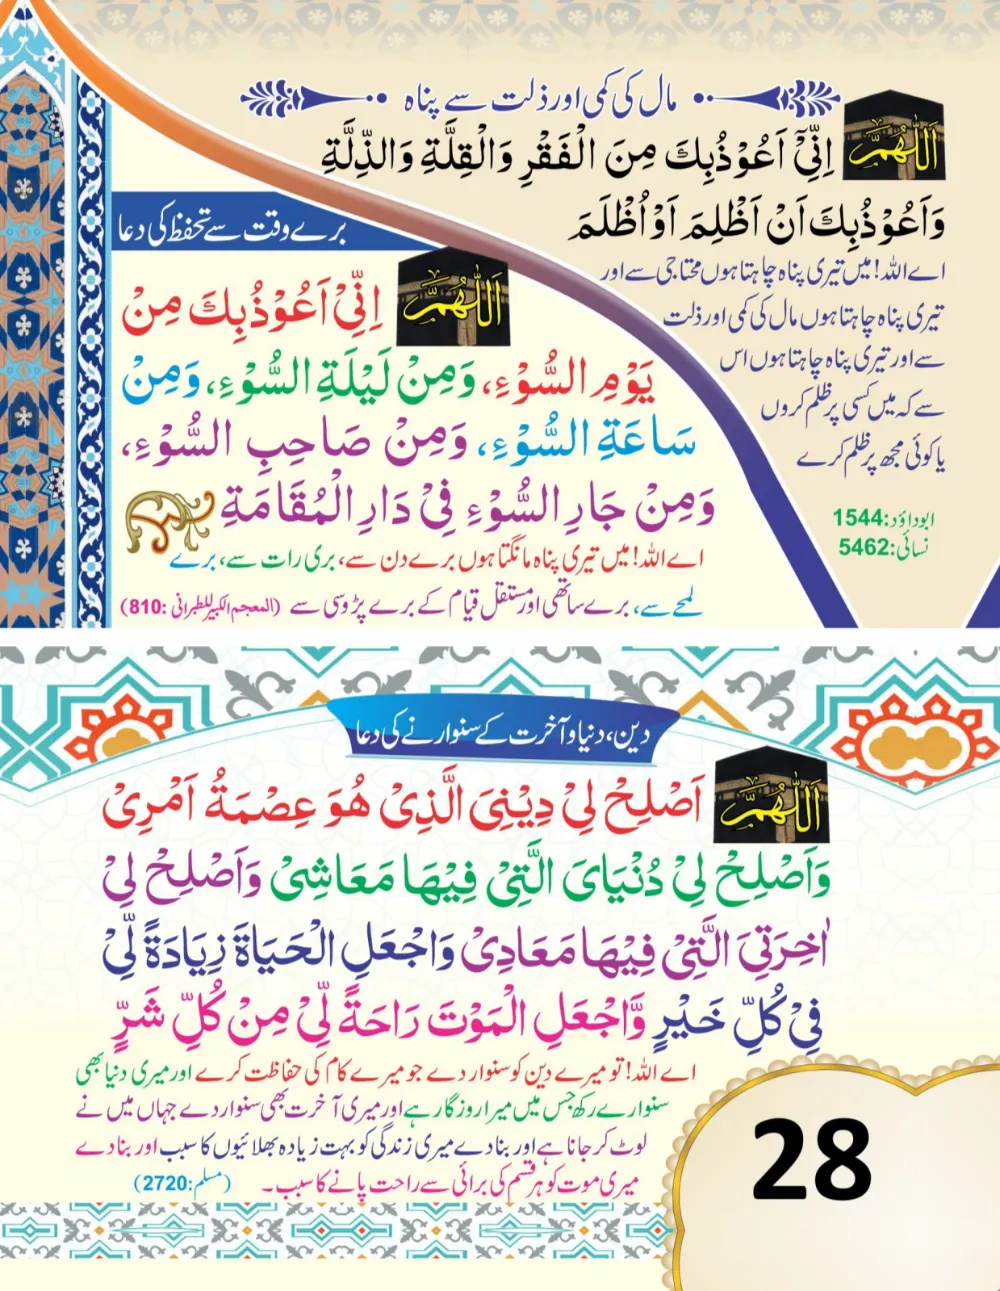 مال کی کمی اور ذلت سے پناہ
اَللّٰهُمَّ اِنِّیْٓ اَعُوْذُبِكَ مِنَ الْفَقْرِ وَالْقِلَّةِ وَالذِّلَّةِ
وَاَعُوْذُبِكَ اَنْ اَظْلِمَ اَوْ اُظْلَمَ
اے اللہ! میں تیری پناہ چاہتا ہوں محتاجی سے اور
تیری پناہ چاہتا ہوں مال کی کمی اور ذلت
سے اور تیری پناہ چاہتا ہوں اس
سے کہ میں کسی پر ظلم کروں
یا کوئی مجھ پر ظلم کرے
ابوداؤد:1544
نسائی:5462
برے وقت سے تحفظ کی دعا
اَللّٰهُمَّ اِنِّیْٓ اَعُوْذُبِكَ مِنْ
يَوْمِ السُّوْءِ، وَمِنْ لَيْلَةِ السُّوْءِ، وَمِنْ
سَاعَةِ السُّوْءِ، وَمِنْ صَاحِبِ السُّوْءِ،
وَمِنْ جَارِ السُّوْءِ فِیْ دَارِ الْمُقَامَةِ
اے اللہ! میں تیری پناہ مانگتا ہوں برے دن سے، بری رات سے، برے
لمحے سے، برے ساتھی اور مستقل قیام کے برے پڑوسی سے (المعجم الکبیر للطبرانی :810)
دین، دنیا و آخرت کے سنوارنے کی دعا
اَللّٰهُمَّ اَصْلِحْ لِیْ دِيْنِیَ الَّذِیْ هُوَ عِصْمَةُ اَمْرِیْ
وَاَصْلِحْ لِیْ دُنْيَایَ الَّتِیْ فِيْهَا مَعَاشِیْ وَاَصْلِحْ لِیْ
اٰخِرَتِیَ الَّتِیْ فِيْهَا مَعَادِیْ وَاجْعَلِ الْحَيَاةَ زِيَادَةً لِّیْ
فِیْ كُلِّ خَيْرٍ وَّاجْعَلِ الْمَوْتَ رَاحَةً لِّیْ مِنْ كُلِّ شَرٍّ
اے اللہ! تو میرے دین کو سنوار دے جو میرے کام کی حفاظت کرے اور میری دنیا بھی
سنوارے رکھ جس میں میرا روزگار ہے اور میری آخرت بھی سنوار دے جہاں میں نے
لوٹ کر جانا ہے اور بنا دے میری زندگی کو بہت زیادہ بھلائیوں کا سبب اور بنا دے
میری موت کو ہر قسم کی برائی سے راحت پانے کا سبب۔ (مسلم:2720)
28